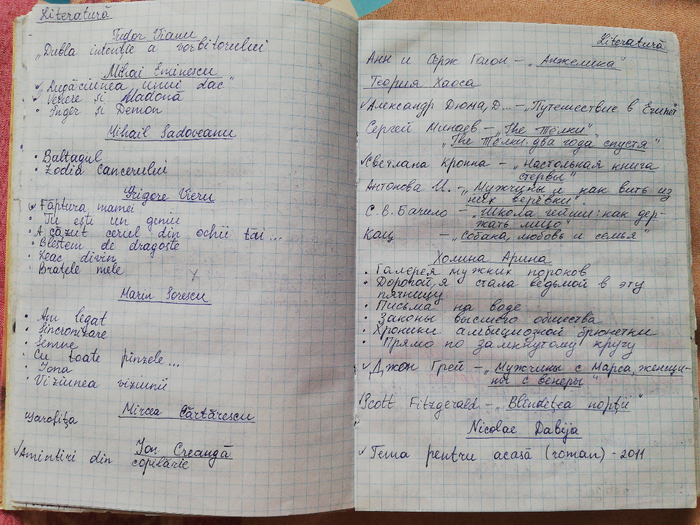 Literatură
Tudor Vianu
„Dubla intenție a vorbitorului
Mihai Eminescu
✓ Rugăciunea unui dac"
✓ Venere și Madonă
• Înger și Demon
Mihail Sadoveanu
• Baltagul
• Zodia Cancerului
Grigore Vieru
✓ Făptura mamei
• Tu ești un geniu
• A căzut cerul din ochii tăi...
• Blestem de dragoste
• Leac divin
• Brațele mele
Marin Sorescu
• Am legat
• Sincronizare
• Semne
• Cu toate pînzele...
• Iona
• Viziunea viziunii
Mircea Cărtărescu
Garofița
Ion Creangă
✓ Amintiri din copilărie
Literatură
Анн и Серж Голон - „Анжелика"
Теория Хаоса
✓ Александр Дюма, Д... - „Путешествие в Египет
Сергей Минаев - „The Тёлки"
„The Тёлки. два года спустя"
✓ Светлана Кронна - „Настольная книга
стервы"
Антонова И. - „Мужчины и как вить из
них верёвки"
С. В. Бачило - „Школа гейши: как дер-
жать лицо"
Кац - „Собака, любовь и семья"
Холина Арина
• Галерея мужских пороков
• Дорогой, я стала ведьмой в эту
пятницу
• Письма на воде
• Законы высшего общества
• Хроники амбициозной брюнетки
• Прямо по замкнутому кругу
✓ Джон Грей - „Мужчины с Марса, женщи-
ны с венеры"
✓ Scott Fitzgerald - „Blîndețea nopții"
Nicolae Dabija
✓ Tema pentru acasă (roman) - 2011